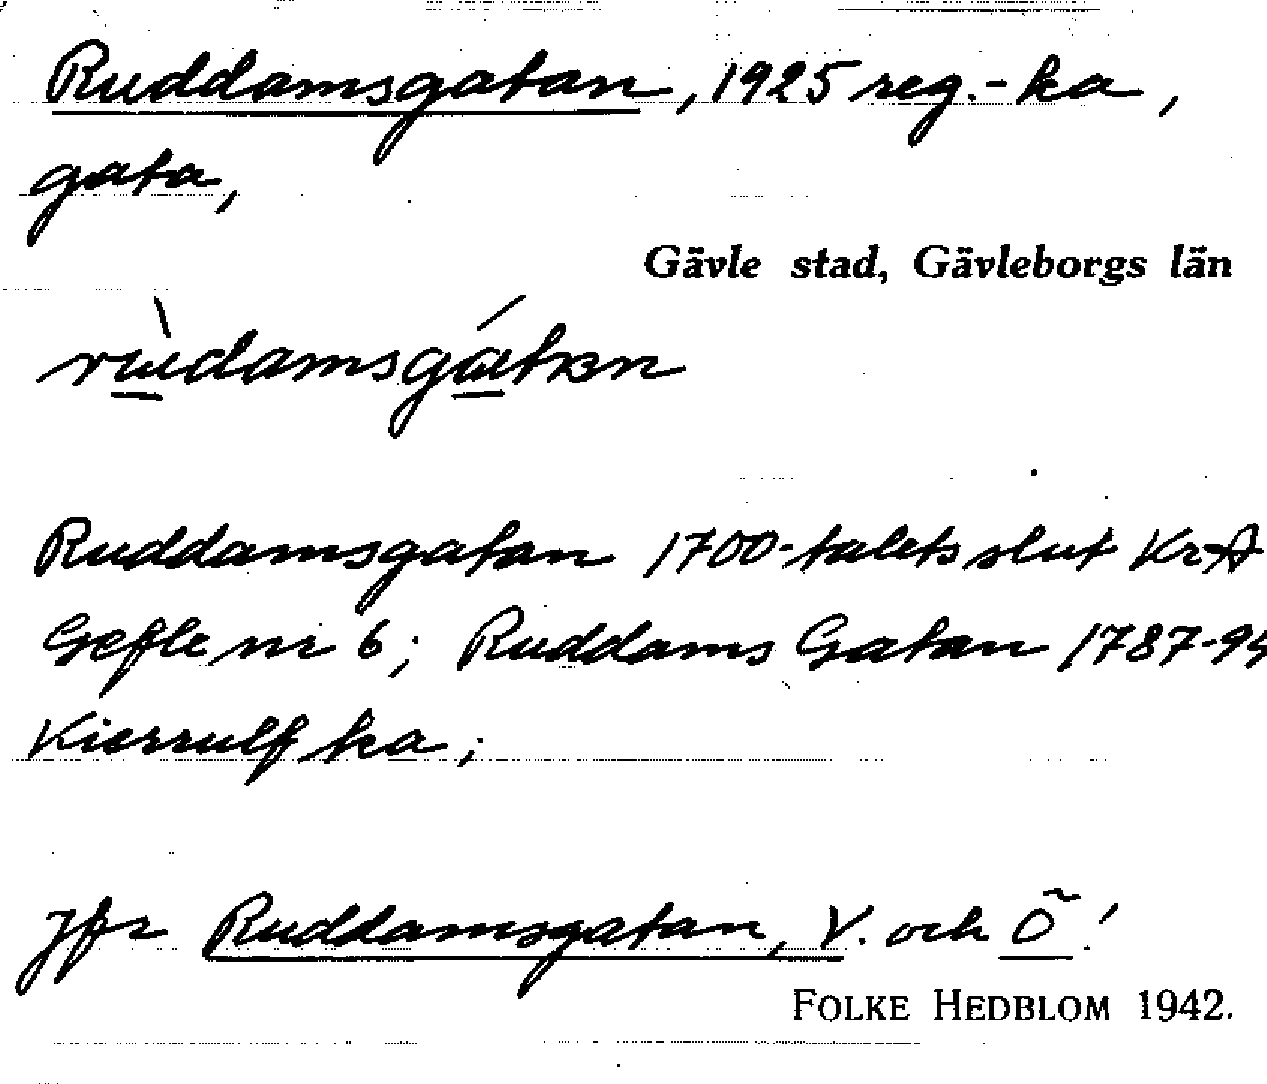 Ruddamsgatan, 1925 reg.-ka,
gata,
Gävle stad, Gävleborgs län
Ruddamsgatan 1700-talets slut KrA
Gefle nr 6; Ruddams Gatan 1787-94
Kierrulf ka;
Jfr Ruddamsgatan, V. och Ö!
FOLKE HEDBLOM 1942.